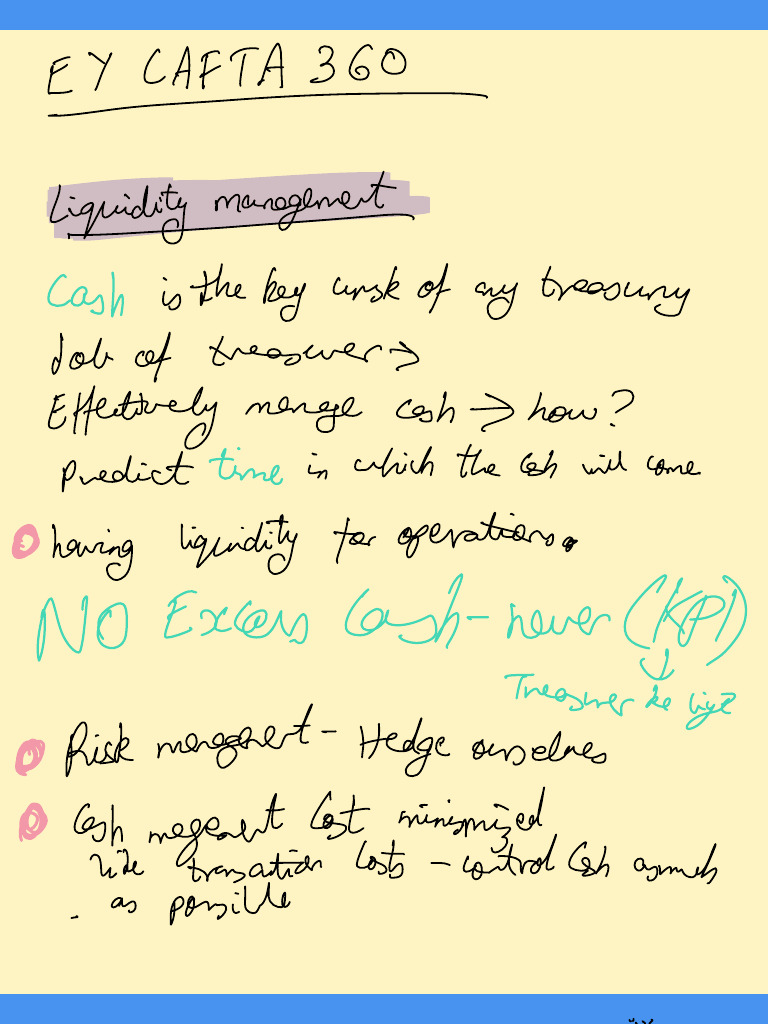 EY CAFTA 360
Liquidity management
Cash is the key of any treasury
Job of treasurer →
Effectively manage cash → how?
Predict time in which the cash will come
having liquidity for operations.
NO Excess Cash - never (KPI)
Treasurer ke liye
Risk management - Hedge ourselves
Cash Cost minimized
like transaction costs - control Cash as much
as possible